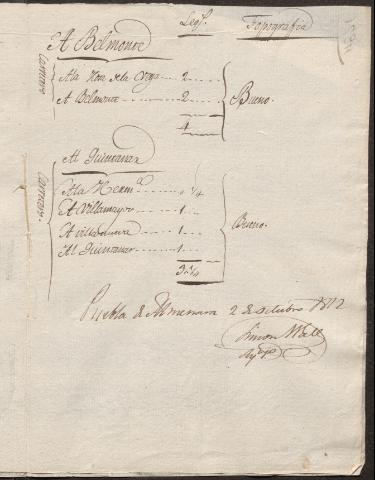 Leg.s Topografia
A Belmonte
A la Hon. de la Vega 2
A Belmonte 2
4
Bueno.
Al Quintanar
A la Herm.a " 1/4
A Villamayor 1
A villanueva 1
Al Quintanar 1
3 " 1/4
Bueno.
Puebla de Almenara 2 de Octubre 1812
Simon